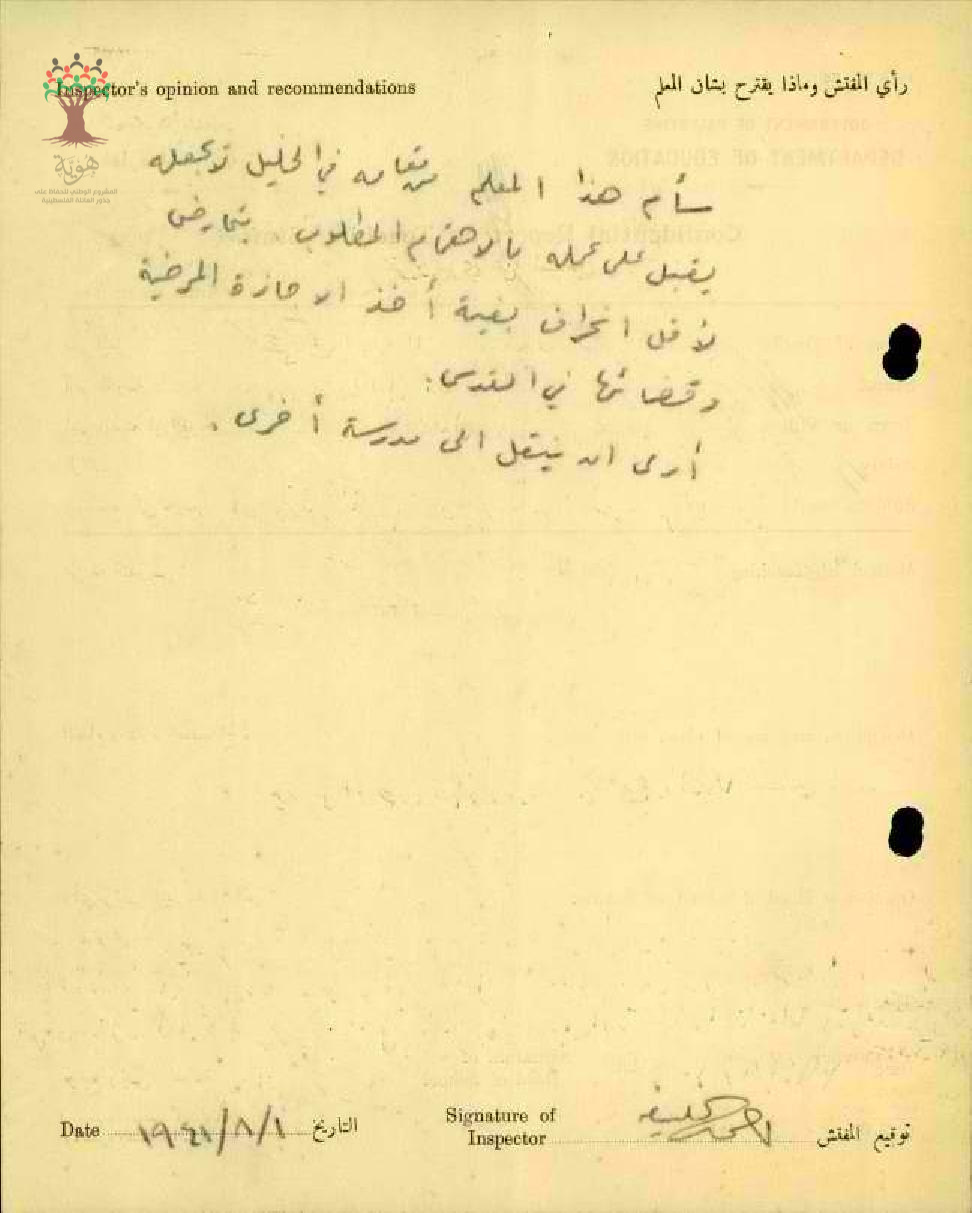 Inspector's opinion and recommendations
رأي المفتش وماذا يقترح بشان المعلم
هوية
المشروع الوطني للحفاظ على
جذور العائلة الفلسطينية
سأم هذا المعلم من مقامه في الخليل لا يجعله
يقبل على عمله بالاهتمام المطلوب يتمارض
لأقل انحراف بغية أخذ الاجازة المرضية
وقضائها في القدس.
أرى ان ينتقل الى مدرسة أخرى.
Date ١٩٤١/٨/١ التاريخ
Signature of
Inspector
توقيع المفتش